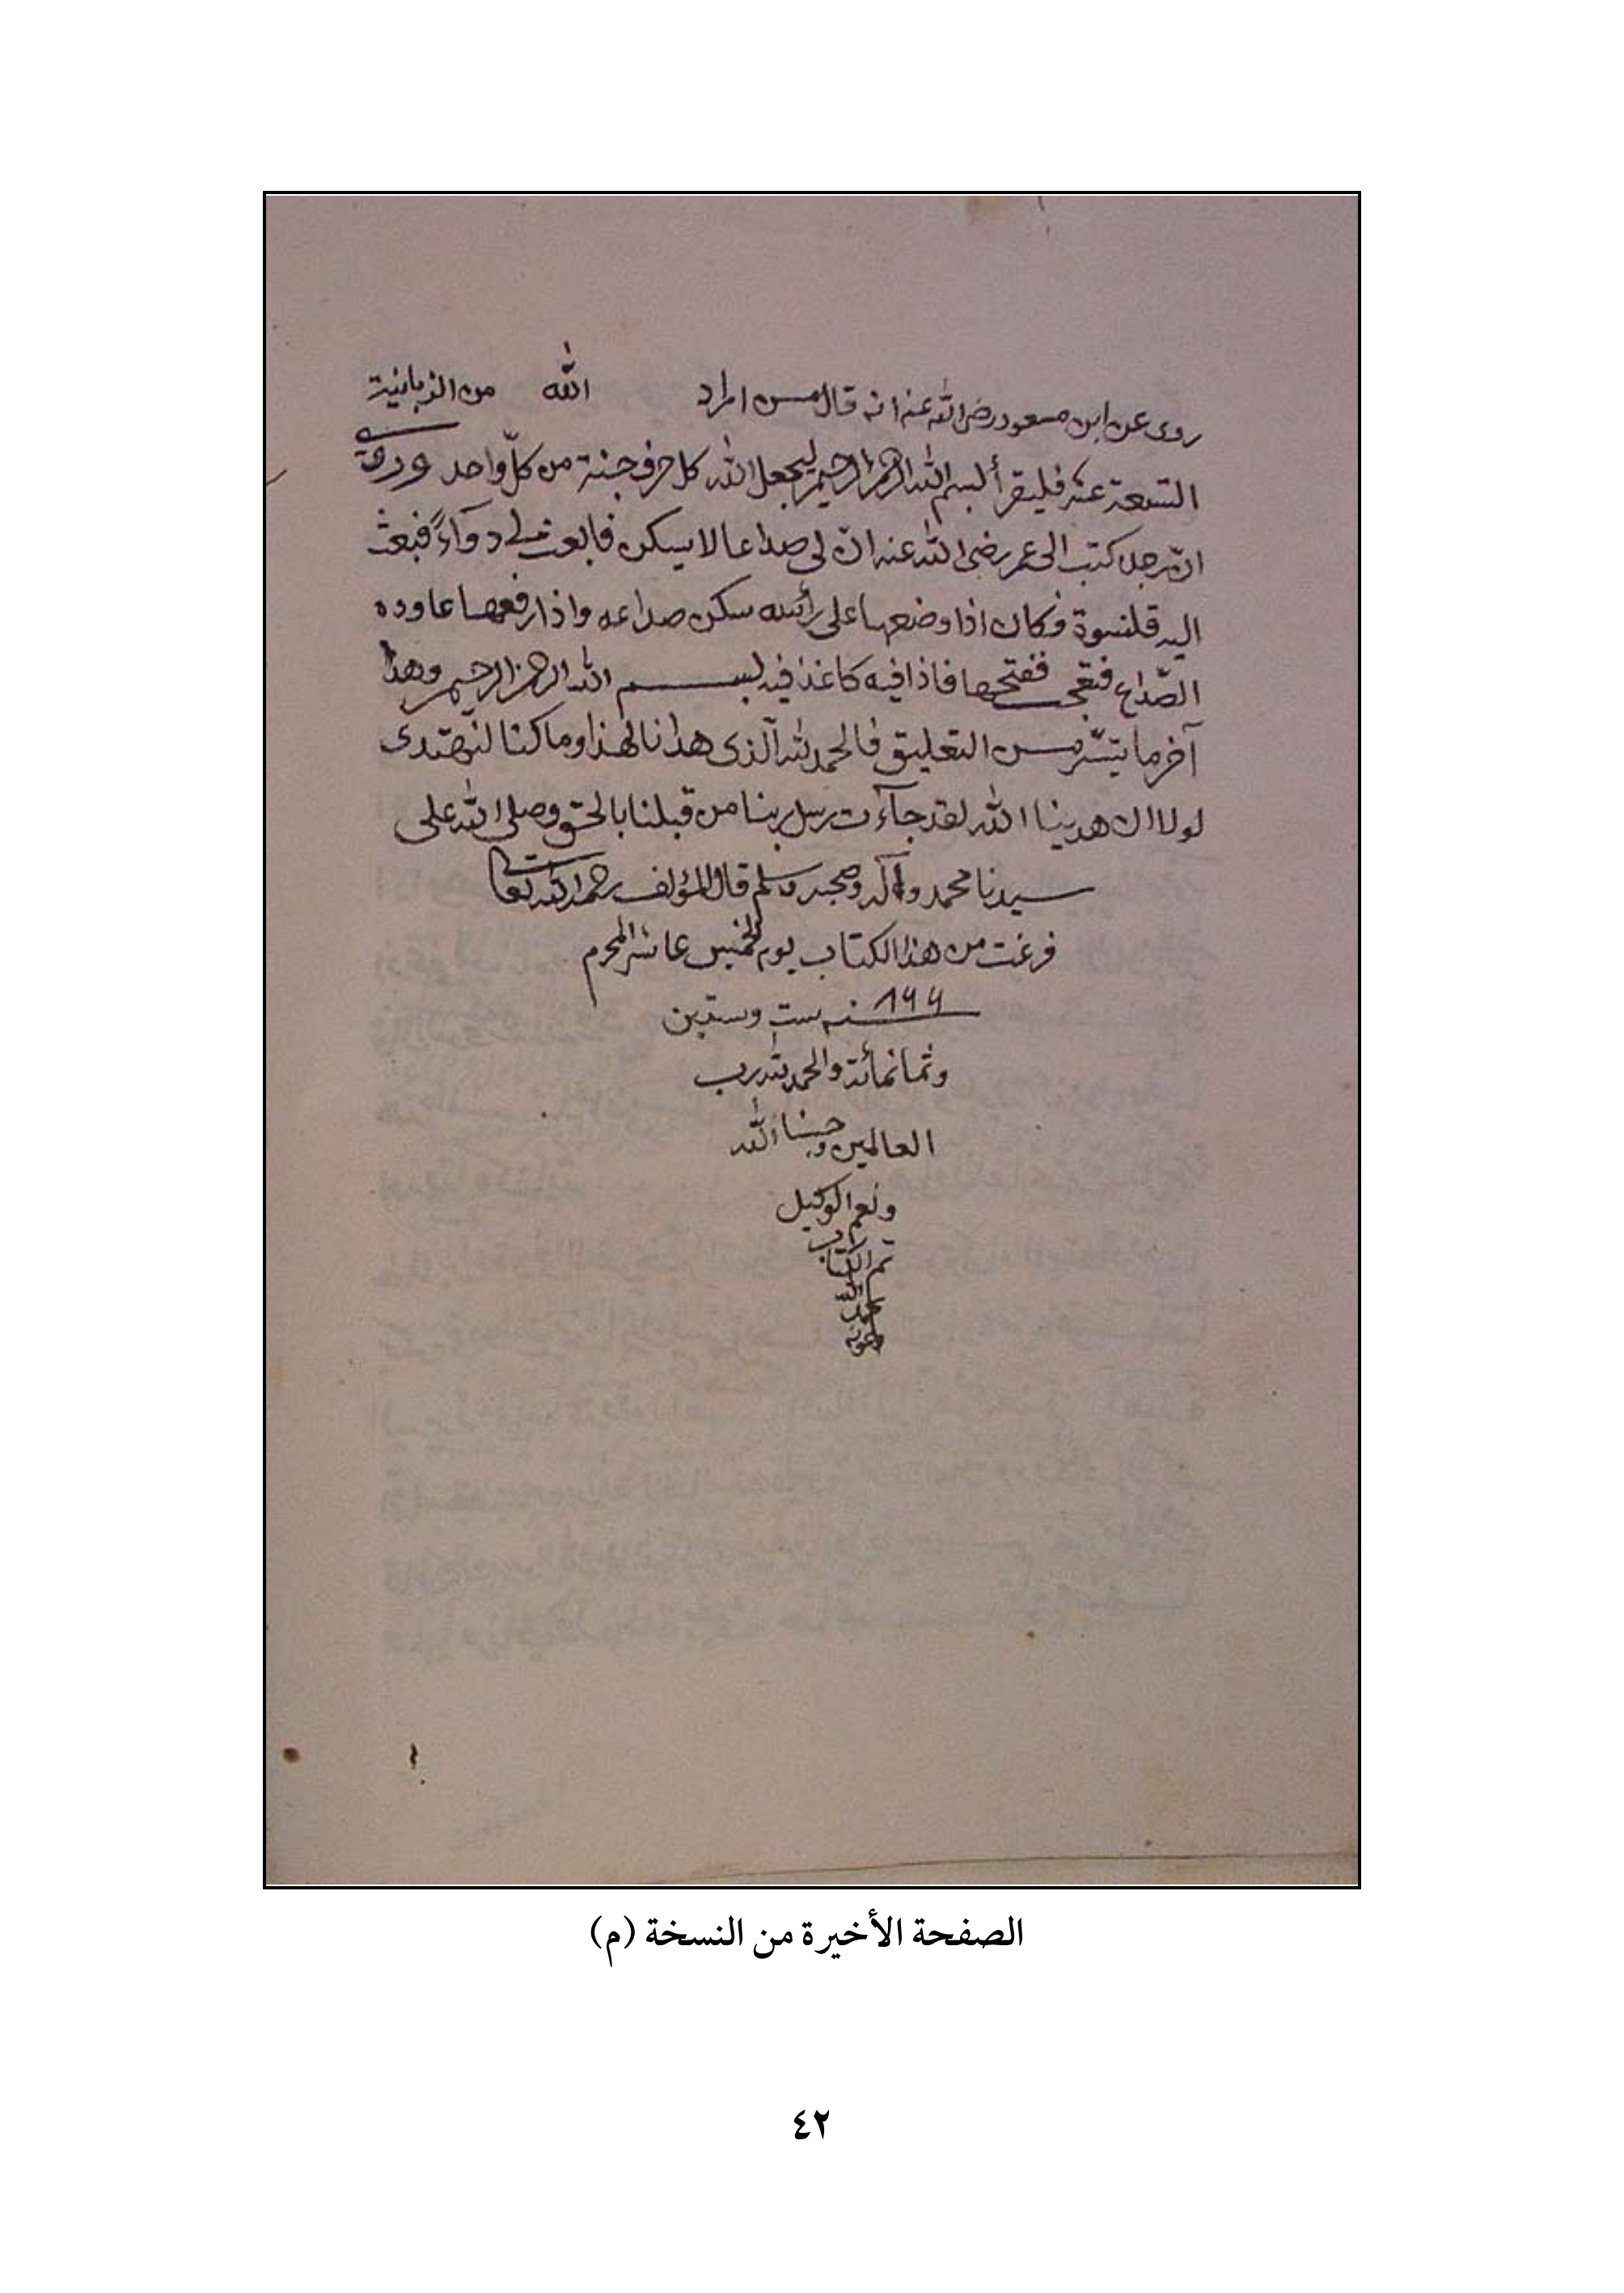 روى عن ابن مسعود رضى الله عنه انه قال من اراد الله من الزبانية
التسعة عشر فليقرأ بسم الله الرحمن الرحيم ليجعل الله كل حرف جنة من كلّ واحد وروى
انّ رجلا كتب الى عمر رضى الله عنه انّ لى صداعا لا يسكن فابعث لى دوآءً فبعث
اليه قلنسوة فكان اذا وضعها على رأسه سكن صداعه واذا رفعها عاوده
الصّداع ففتحها فاذا فيه كاغذ فيه بسم الله الرحمن الرحيم وهذا
آخر ما يتسّر من التعليق فالحمد لله الّذى هدانا لهذا وما كنا لنهتدى
لولا ان هدينا الله لقد جآءت رسل ربنا من قبلنا بالحق وصلى الله على
سيدنا محمد وآله وصحبه وسلم قال المؤلف رحمه الله تعالى
فرغت من هذا الكتاب يوم الخميس عاشر المحرم
سنه ست وستين
وثمانمائة والحمد لله رب
العالمين وحسبنا الله
ونعم الوكيل
تم الكتاب
بحمد الله
وعونه
الصفحة الأخيرة من النسخة (م)
٤٢